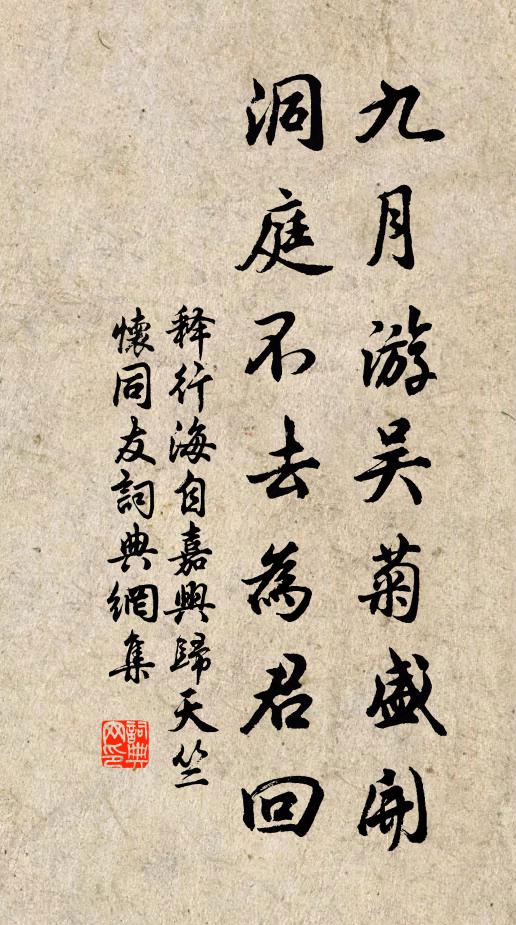 九月游吴菊盛開
洞庭不去為君回
释行海自嘉興歸天竺
懷同友詞典網集
詞典
网印